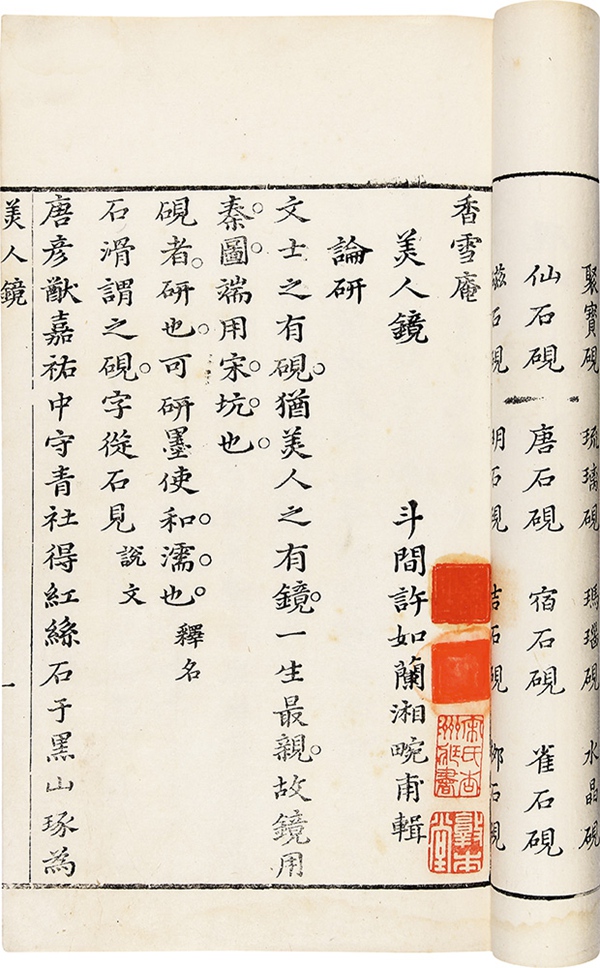 聚寶硯 琉璃硯 瑪瑙硯 水晶硯
仙石硯 唐石硯 宿石硯 雀石硯
香雪庵
美人鏡
斗間許如蘭湘畹甫輯
論研
文士之有硯猶美人之有鏡一生最親故鏡用
秦圖端用宋坑也
硯者研也可研墨使和濡也 釋名
石滑謂之硯字從石見 說文
唐彥猷嘉祐中守青社得紅絲石于黑山琢為
美人鏡 一
敦本堂